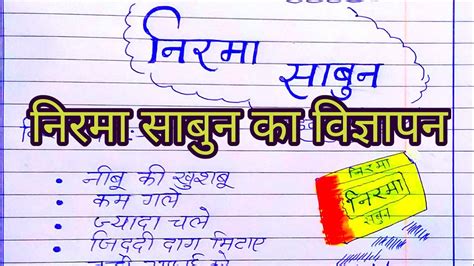 निरमा
साबुन
निरमा साबुन का विज्ञापन
• नीबू की खुशबू
• कम गले
• ज्यादा चले
• जिददी दाग मिटाए
निरमा
निरमा
साबुन